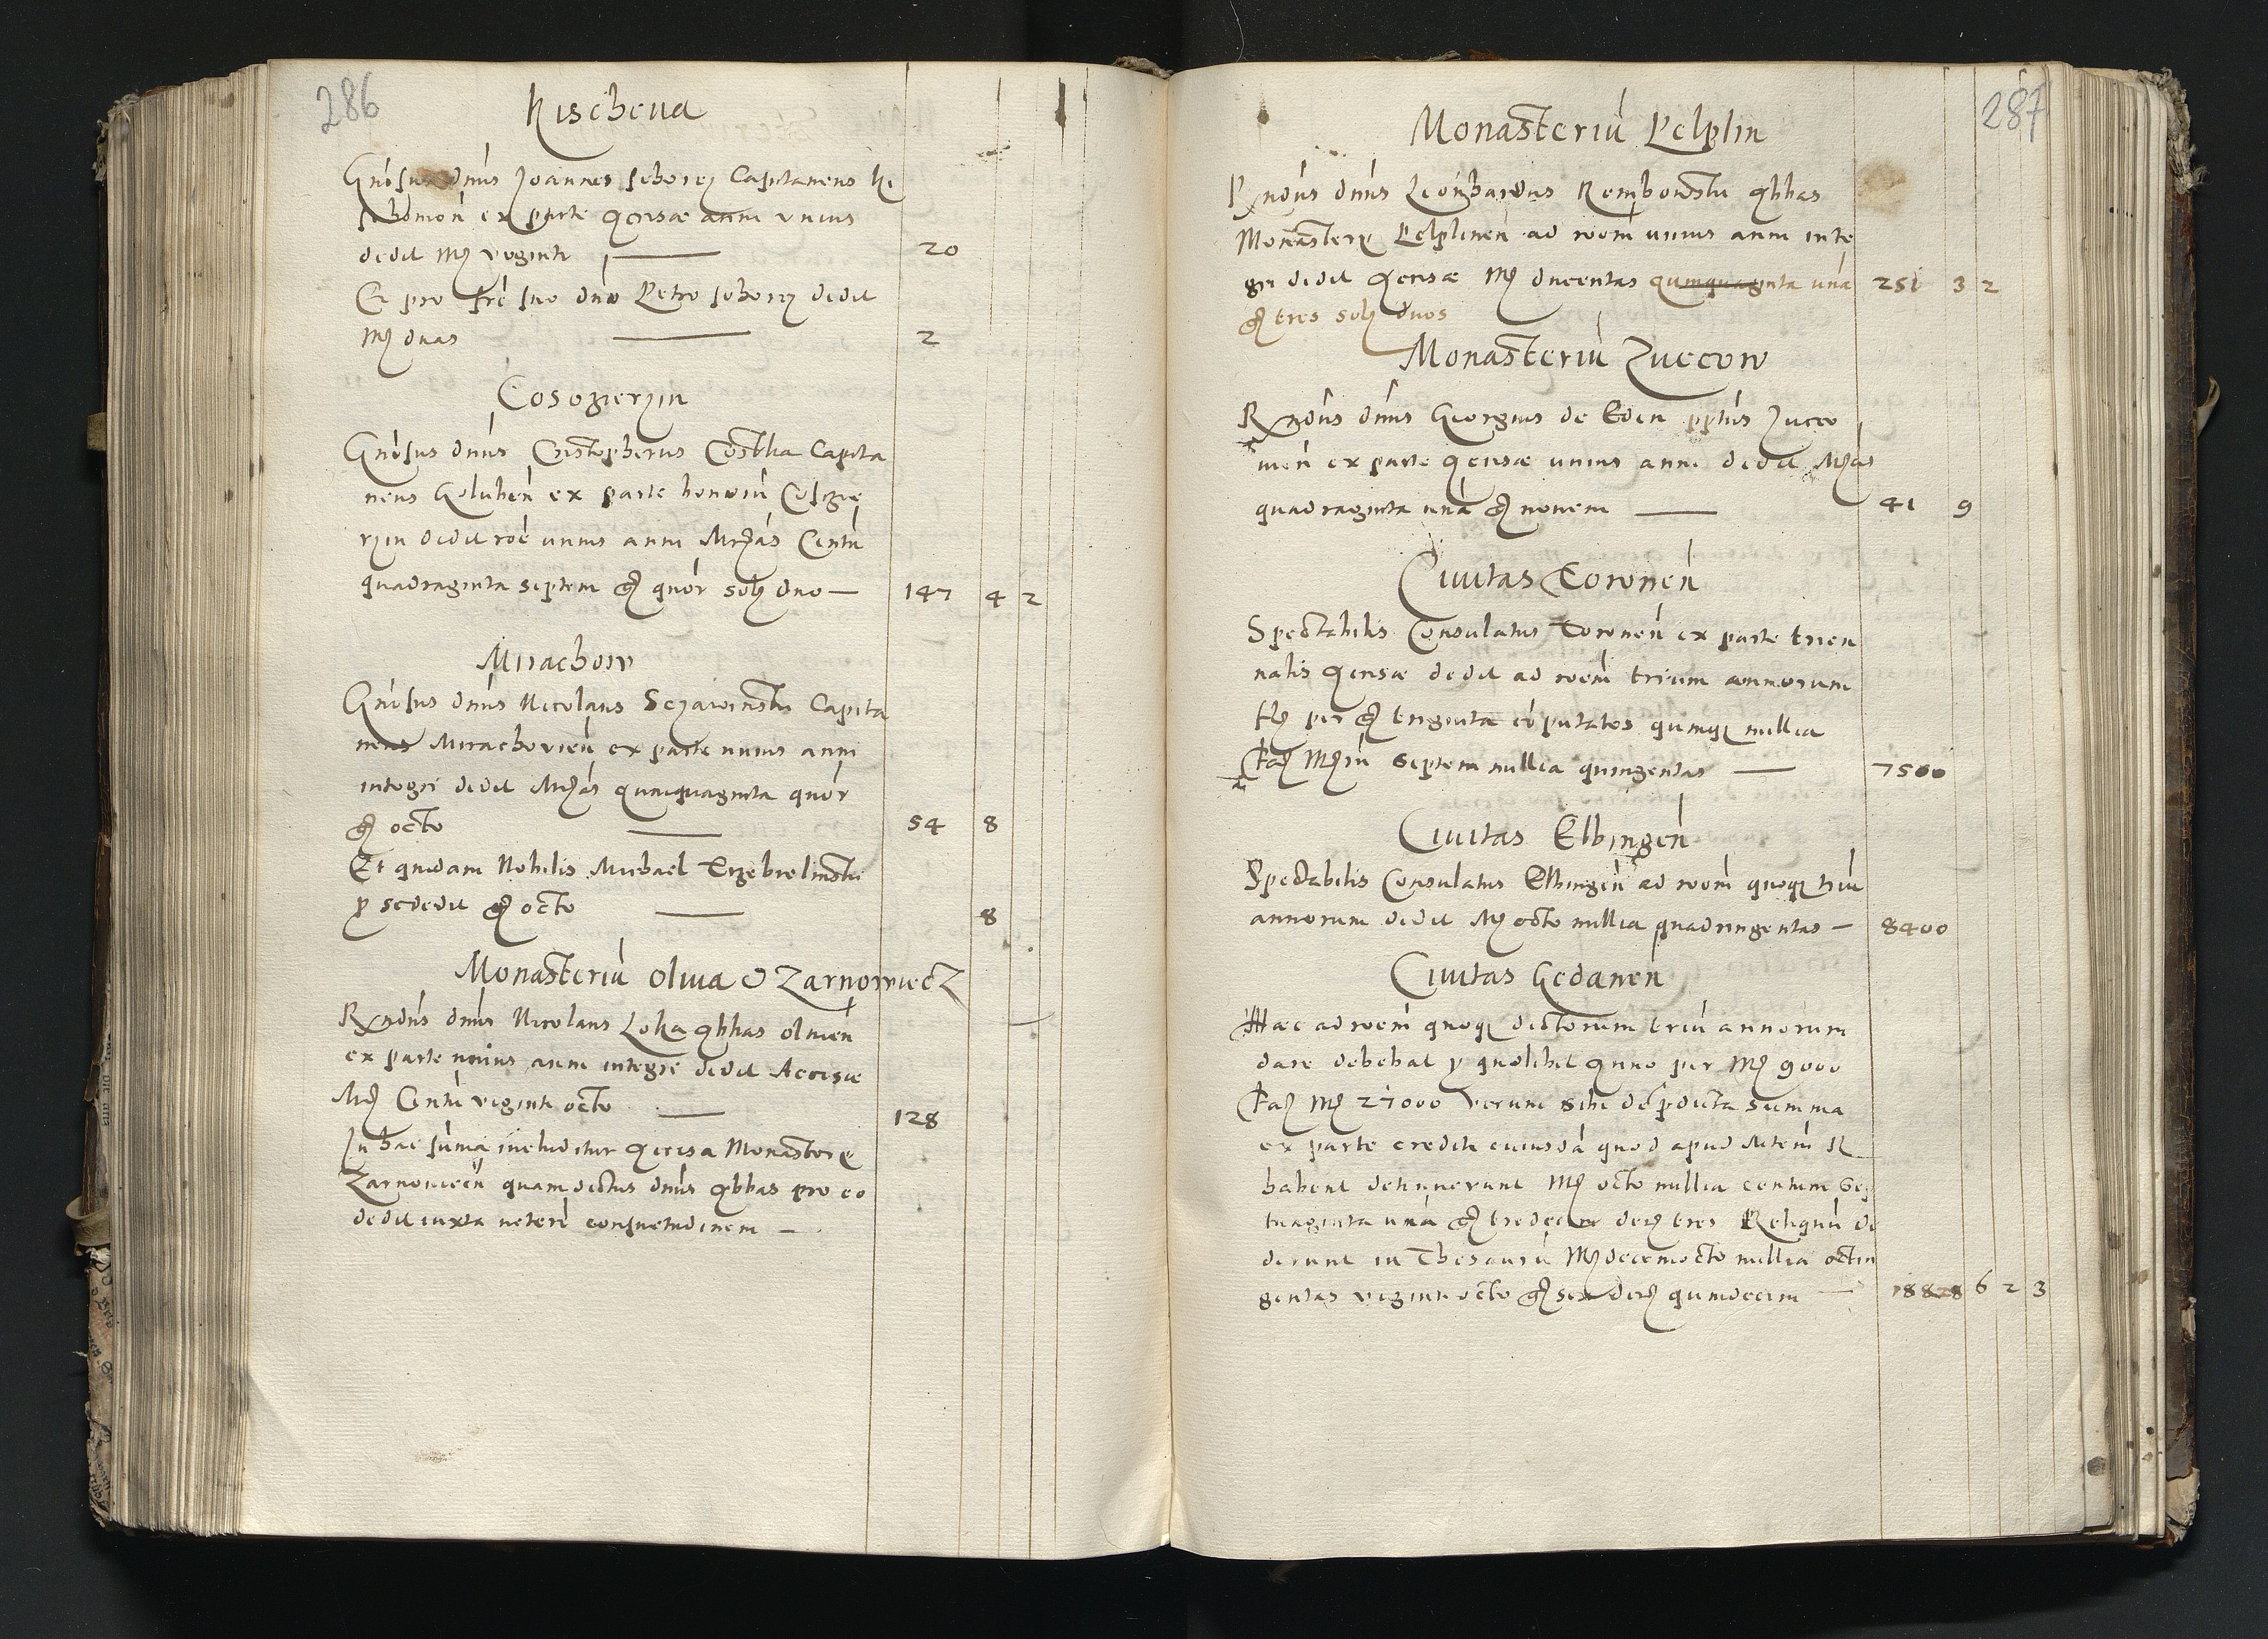 286
Kischeua
Gnosus dnus Joannes schorcz Capitaneus Ki
ex parte accisae anni unius
dedit Mr viginti — 20
Et pro fre suo dno Petro schorcz dedit
Mr duas — 2
Cosczierzin
Gnosus dnus Cristopherus Costhka Capita
neus Goluben ex parte bonorum Coscie
rzin dedit roe unius anni Mrcas Centu
quadraginta septem gr quor sol duo — 147 4 2
Mirachow
Gnosus dnus Nicolaus Sczawinski Capita
neus Mirachovien ex parte unius anni
integri dedit Mrcas quinquaginta quor
gr octo — 54 8
Et quidam Nobilis Michael
p se dedit gr octo — 8
Monasteriu Oliua & Zarnowiecz
Rndus dnus Nicolaus Loka abbas oliuen
ex parte unius anni integre dedit Accisae
Mr Centu viginti octo — 128
In hac suma includitur accisa Monastery
Zarnouiecen quam dictus dnus abbas pro eo
dedit iuxta uetere consuetudinem —
287
Monasteriu Pelplin
Rndus dnus Leonhardus Rembowski abbas
Monastery Pelplinen ad roem unius anni inte
gri dedit accisae Mr ducentas quinquaginta una 251 3 2
gr tres sol duos
Monasteriu Zuccow
Rndus dnus Georgius de Eden pptus Zucco
uien ex parte accisae unius anni dedit Mrcas
quadraginta una gr nouem — 41 9
Ciuitas Toronen
Spectabilis Consulatus Toronen ex parte trien
nalis accisae dedit ad roem trium annorum
fl per gr triginta coputatos quinque millia
fac Mrcaru septem millia quingentas — 7500
Ciuitas Elbingen
Spectabilis Consulatus Elbingen ad roem quoque triu
annorum dedit Mr octo millia quadringentas — 8400
Ciuitas Gedanen
Haec ad roem quoque dictorum triu annorum
dare debebat p quolibet anno per Mr 9000
fac Mr 27000 verum sibi de pdicta summa
ex parte crediti cuiusda quod apud Mtem R
habent detinuerunt Mr octo millia centum sep
tuaginta una gr tredecim den tres Reliquu de
derunt in Thesauru Mr decemocto millia octin
gentas viginti octo gr sex den quindecim — 18828 6 2 3